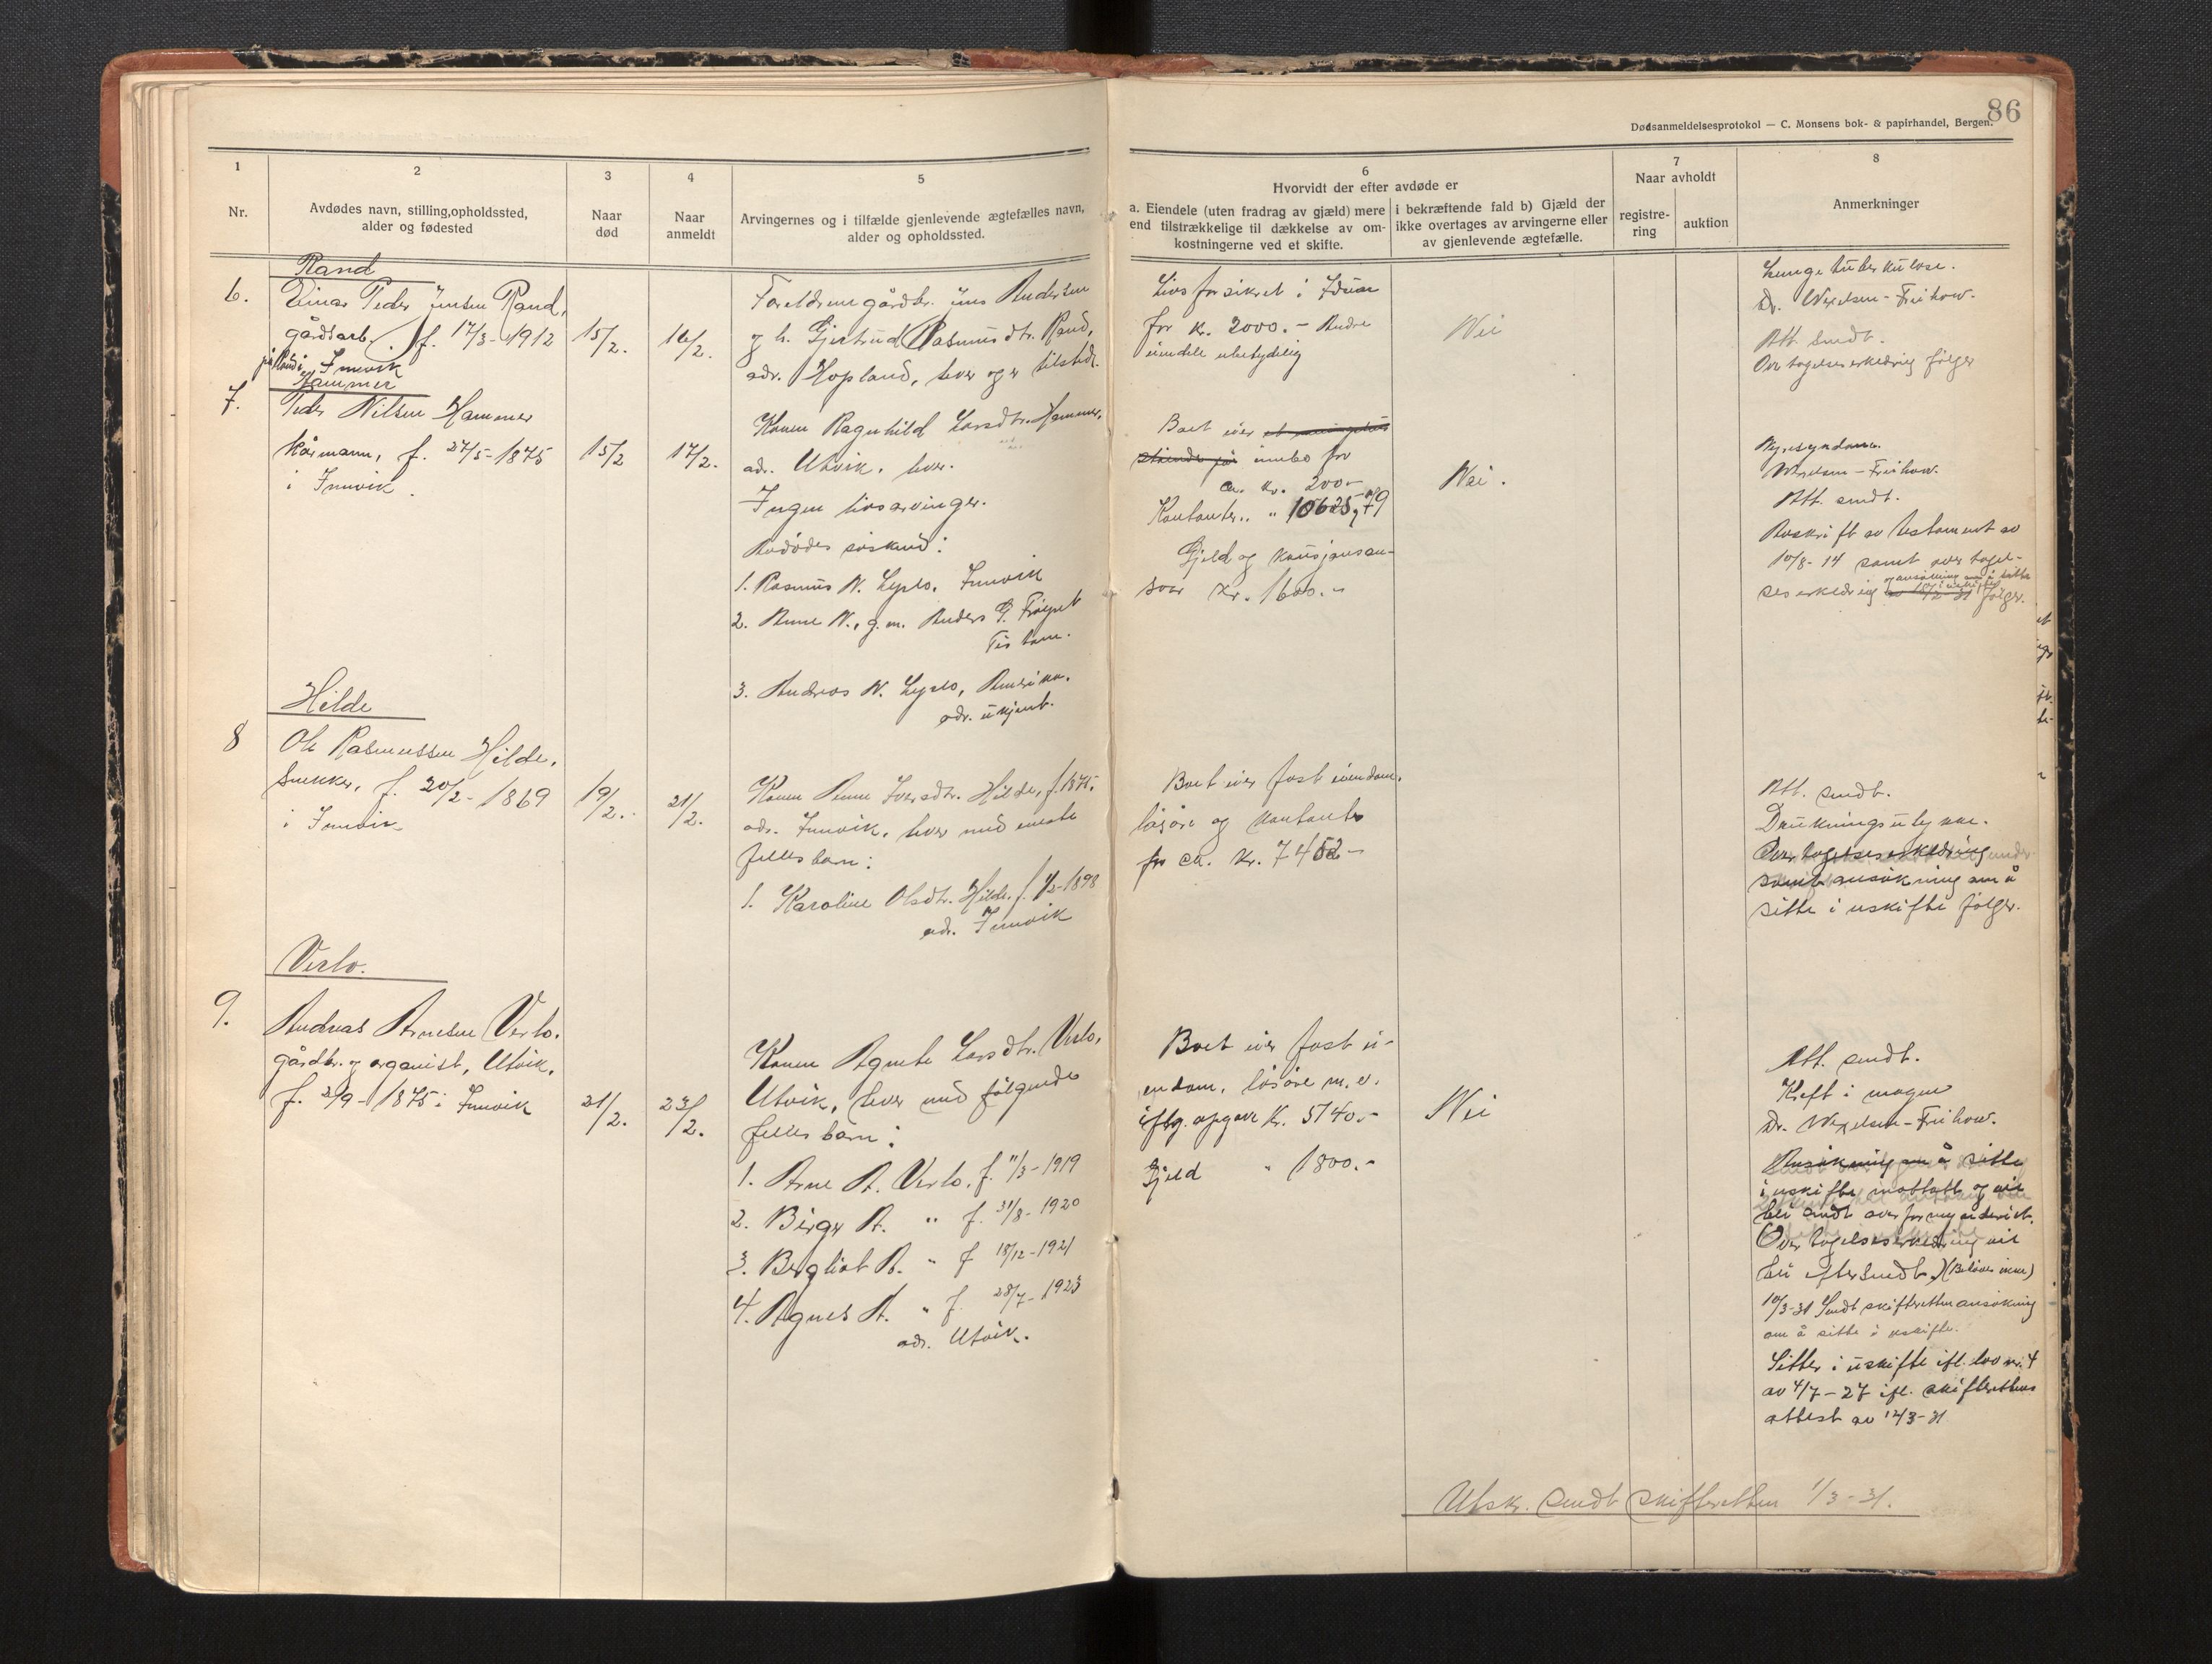 86
Dødsanmeldelsesprotokol — C. Monsens bok- & papirhandel, Bergen.
1
2
3
4
5
6
7
8
Nr.
Avdødes navn, stilling, opholdssted,
alder og fødested
Naar
død
Naar
anmeldt
Arvingernes og i tilfælde gjenlevende ægtefælles navn,
alder og opholdssted.
Hvorvidt der efter avdøde er
a. Eiendele (uten fradrag av gjæld) mere
end tilstrækkelige til dækkelse av om-
kostningerne ved et skifte.
i bekræftende fald b) Gjæld der
ikke overtages av arvingerne eller
av gjenlevende ægtefælle.
Naar avholdt
registre-
ring
auktion
Anmerkninger
Rand
6.
Einar Peder Jensen Rand,
gårdsarb. f. 17/3-1912
Innvik
15/2.
16/2.
Foreldrene gårdbr. Jens Andersen
og h. Gjertrud Rasmusdtr. Rand,
adr. Hopland, lever og er tilstede.
Livsforsikret i Idun
for kr. 2000.- Andre
eiendele ubetydelig
Nei
Lungetuberkulose.
Dr. Wexelsen-Freihow.
Att. sendt.
Overtagelseserklæring følger
Hammer
7.
Peder Nilsen Hammer
kårmann, f. 27/5-1875
i Innvik.
15/2
17/2.
Konen Ragnhild Larsdtr. Hammer,
adr. Utvik, lever.
Ingen livsarvinger.
Avdødes søsken:
1. Rasmus N. Lyslo, Innvik
2. Anne N., g.m. Anders G. Frøyset
3. Andreas N. Lyslo, Amerika.
adr. ukjent.
Boet eier
innbo for
ca. kr. 200-
Kontanter.. " 10625,79
Gjeld og kausjonsan-
svar kr. 1600.-
Nei.
Nyresyndom.
Wexelsen-Freihow.
Att. sendt.
Avskrift av testament av
10/8-14 samt overtagel-
seserklæring
følger.
Hilde
8
Ole Rasmussen Hilde,
snekker, f. 20/2-1869
i Innvik
19/2.
21/2.
Konen Anne Iversdtr. Hilde, f. 1875,
adr. Innvik, lever med eneste
felles barn:
1. Karoline Olsdtr. Hilde, f. 1/2-1898
adr. Innvik
Boet eier fast eiendom,
løsøre og kontanter
for ca. kr. 7452-
Att. sendt.
Drukningsulykke.
Overtagelseserklæring
samt ansøkning om å
sitte i uskifte følger.
Verlo.
9.
Andreas Arnesen Verlo.
gårdbr. og organist, Utvik,
f. 2/9-1875 i Innvik
21/2.
23/2.
Konen Agnete Larsdtr. Verlo,
Utvik, lever med følgende
felles barn:
1. Arne A. Verlo, f. 11/3-1919
2. Birger A. " f. 31/8-1920
3. Bergliot A. " f 18/12-1921
4. Agnes A. " f. 28/7-1923
adr. Utvik.
Boet eier fast ei-
endom, løsøre m.v.
iflg. opgave kr. 5140.-
Gjeld " 1800.-
Nei
Att. sendt.
Kreft i magen
Dr. Wexelsen-Freihow.
Ansøkning om å sitte
i uskifte mottatt og vil
bli sendt overformynderiet.
Overtagelseserklæring vil
bli eftersendt.
10/3-31 Sendt skifteretten ansøkning
om å sitte i uskifte.
Sitter i uskifte ifl. lov nr. 4
av 4/7-27 ifl. skifterettens
attest av 12/3-31
Utskr. sendt skifteretten 1/3-31.